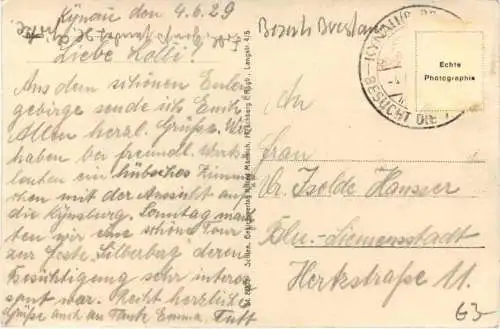 Kynau den 4.6.29
Bezirk Breslau
Liebe Lolli!
Aus dem schönen Eulen-
gebirge sende ich Euch
Allen herzl. Grüße. Wir
haben bei freundl. Wirts-
leuten ein hübsches Zimmer-
chen mit der Aussicht auf
die Kynsburg. Sonntag mach-
ten wir eine schöne Tour
zur Feste Silberberg deren
Besichtigung sehr interes-
sant war. Recht herzliche
Grüße auch an Tante Emma,
KYNAU
BESUCHT DIE
Echte
Photographie
An
Frau
Dr. Isolde Hausser
Bln.-Siemensstadt
Herkstraße 11.
63